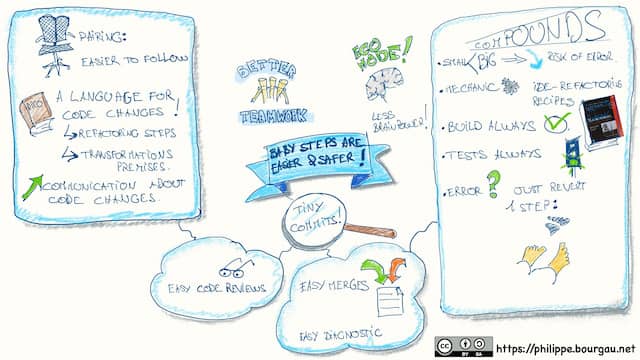 PAIRING:
EASIER TO FOLLOW
A LANGUAGE FOR
CODE CHANGES!
REFACTORING STEPS
TRANSFORMATIONS
PREMISES.
COMMUNICATION ABOUT
CODE CHANGES.
BETTER
TEAMWORK
ECO
MODE!
LESS
BRAIN POWER!
BABY STEPS ARE
EASIER & SAFER!
TINY
COMMITS!
EASY CODE REVIEWS
EASY MERGES
EASY DIAGNOSTIC
COMPOUNDS
SMALL < BIG
RISK OF ERROR.
MECHANIC
IDE-REFACTORING
RECIPES
BUILD ALWAYS
TESTS ALWAYS
ERROR? JUST REVERT
1 STEP:
CC
BY SA
https://philippe.bourgau.net